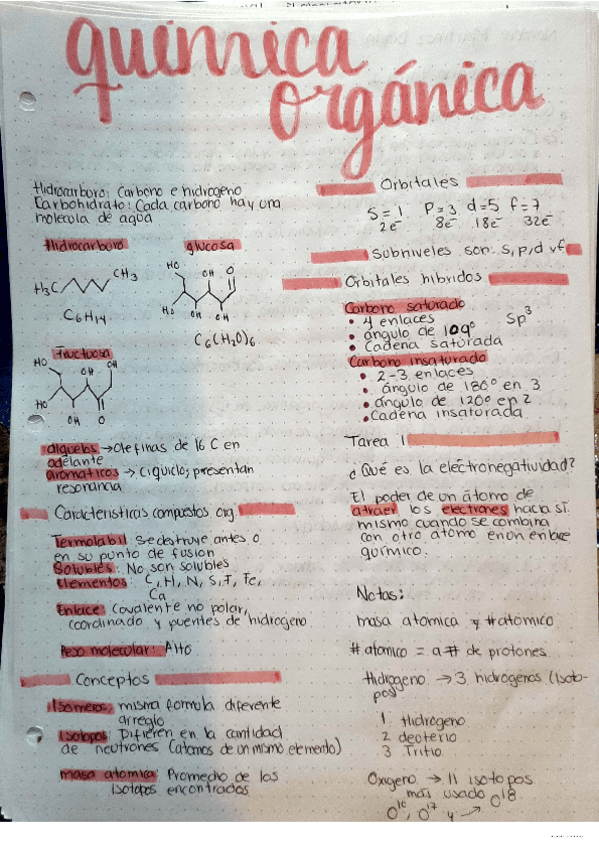 química
orgánica
Hidrocarburo: Carbono e hidrogeno
Carbohidrato: Cada carbono hay una
molecula de agua
Hidrocarburo
glucosa
H₃C
CH₃
C₆H₁₄
HO
OH
O
HO
OH
OH
C₆(H₂O)₆
Fructuosa
HO
OH
OH
HO
OH
O
→ Olefinas de 16 C en
adelante
aromaticos → Ciquiclo; presentan
resonancia
Caracteristicas compuestos org.
Termolabil: Se destruye antes o
en su punto de fusion
Solubles: No son solubles
Elementos: C, H, N, S, I, Fe,
Ca
Enlace: Covalente no polar,
coordinado y puentes de hidrogeno
Peso molecular: Alto
Conceptos
Isomeros: misma formula diferente
arreglo
Isotopos: Difieren en la cantidad
de neutrones (atomos de un mismo elemento)
masa atomica: Promedio de los
isotopos encontrados
Orbitales
S=1 P=3 d=5 f=7
2e⁻ 8e⁻ 18e⁻ 32e⁻
Subniveles son: s, p, d y f
Orbitales hibridos
Carbono saturado
• 4 enlaces
• angulo de 109°
• Cadena saturada
Sp³
Carbono insaturado
• 2-3 enlaces
• ángulo de 180° en 3
• ángulo de 120° en 2
• Cadena insaturada
Tarea 1
¿Qué es la electronegatividad?
El poder de un átomo de
atraer los electrones hacia sí
mismo cuando se combina
con otro atomo en un enlace
químico.
Notas:
masa atomica y #atomico
# atomico = a # de protones
Hidrogeno → 3 hidrogenos (Isoto-
pos)
1 Hidrogeno
2 deoterio
3 Tritio
Oxigeno → 11 isotopos
más usado O¹⁸
O¹⁶, O¹⁷ y →